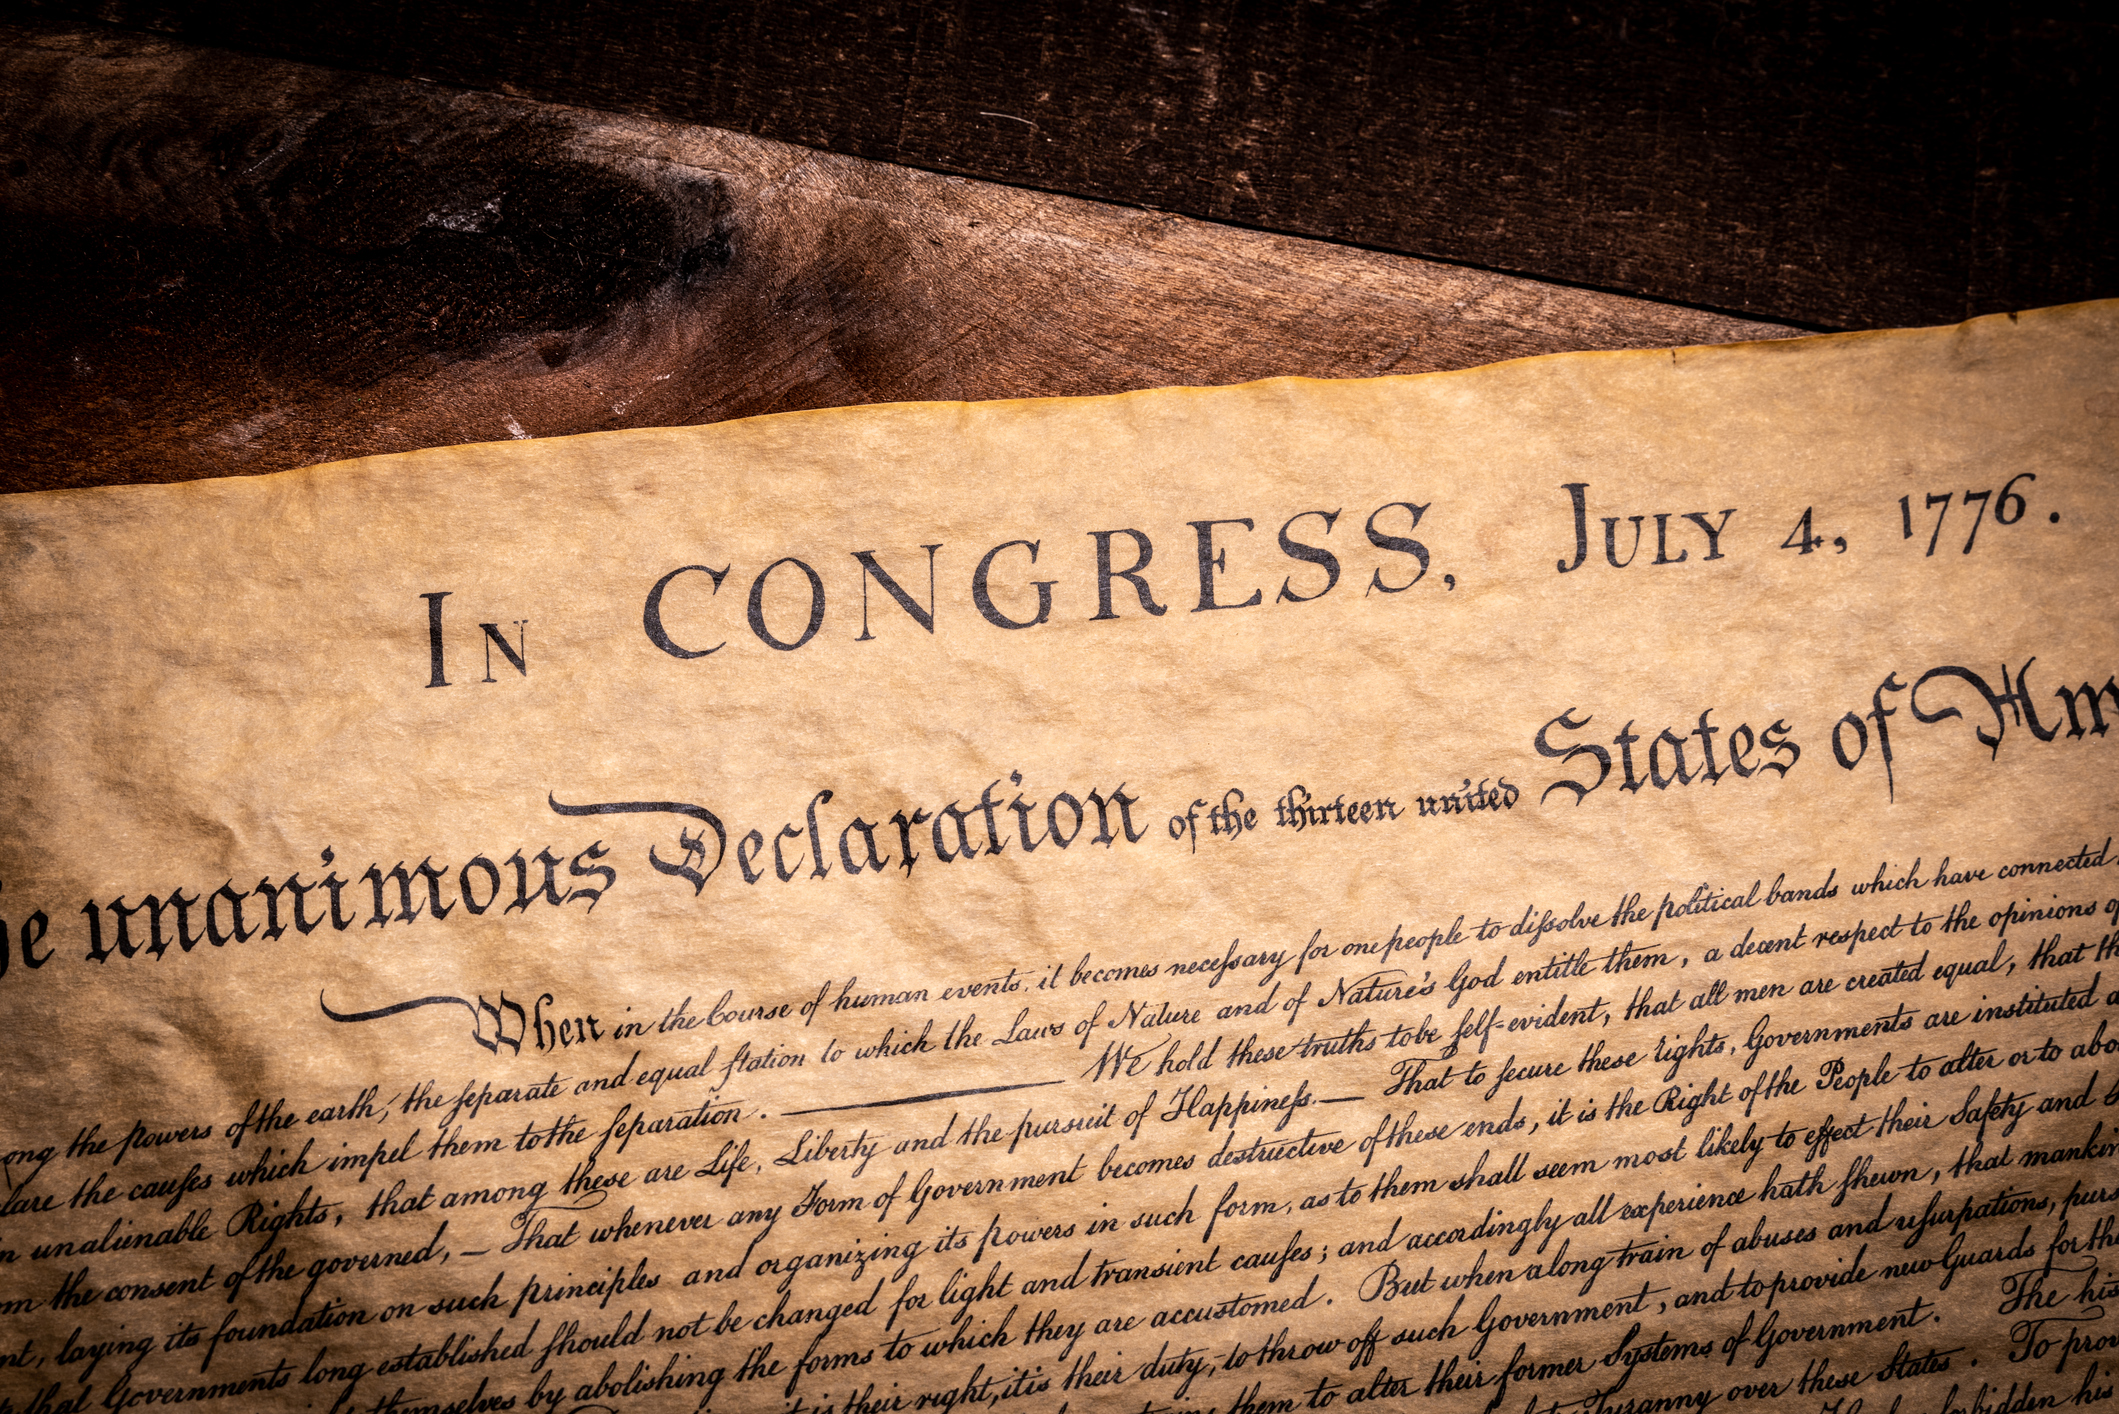 In CONGRESS, July 4, 1776.
he unanimous Declaration of the thirteen united States of Am
When in the Course of human events, it becomes neceſsary for one people to diſsolve the political bands which have connected
ong the powers of the earth, the ſeparate and equal ſtation to which the Laws of Nature and of Nature's God entitle them, a decent respect to the opinions o
lare the cauſes which impel them to the ſeparation. ——— We hold these truths to be ſelf-evident, that all men are created equal, that th
n unalienable Rights, that among these are Life, Liberty and the pursuit of Happineſs.— That to ſecure these rights, Governments are instituted a
m the consent of the governed, — That whenever any Form of Government becomes destructive of these ends, it is the Right of the People to alter or to abo
nt, laying its foundation on such principles and organizing its powers in such form, as to them shall seem most likely to effect their Safety and
that Governments long established ſhould not be changed for light and transient cauſes; and accordingly all experience hath ſhewn, that mankin
themselves by abolishing the forms to which they are accustomed. But when a long train of abuses and uſurpations, purs
is their right, it is their duty, to throw off such Government, and to provide new Guards for the
them to alter their former Systems of Government. The his
Tyranny over these States. To prov
forbidden his